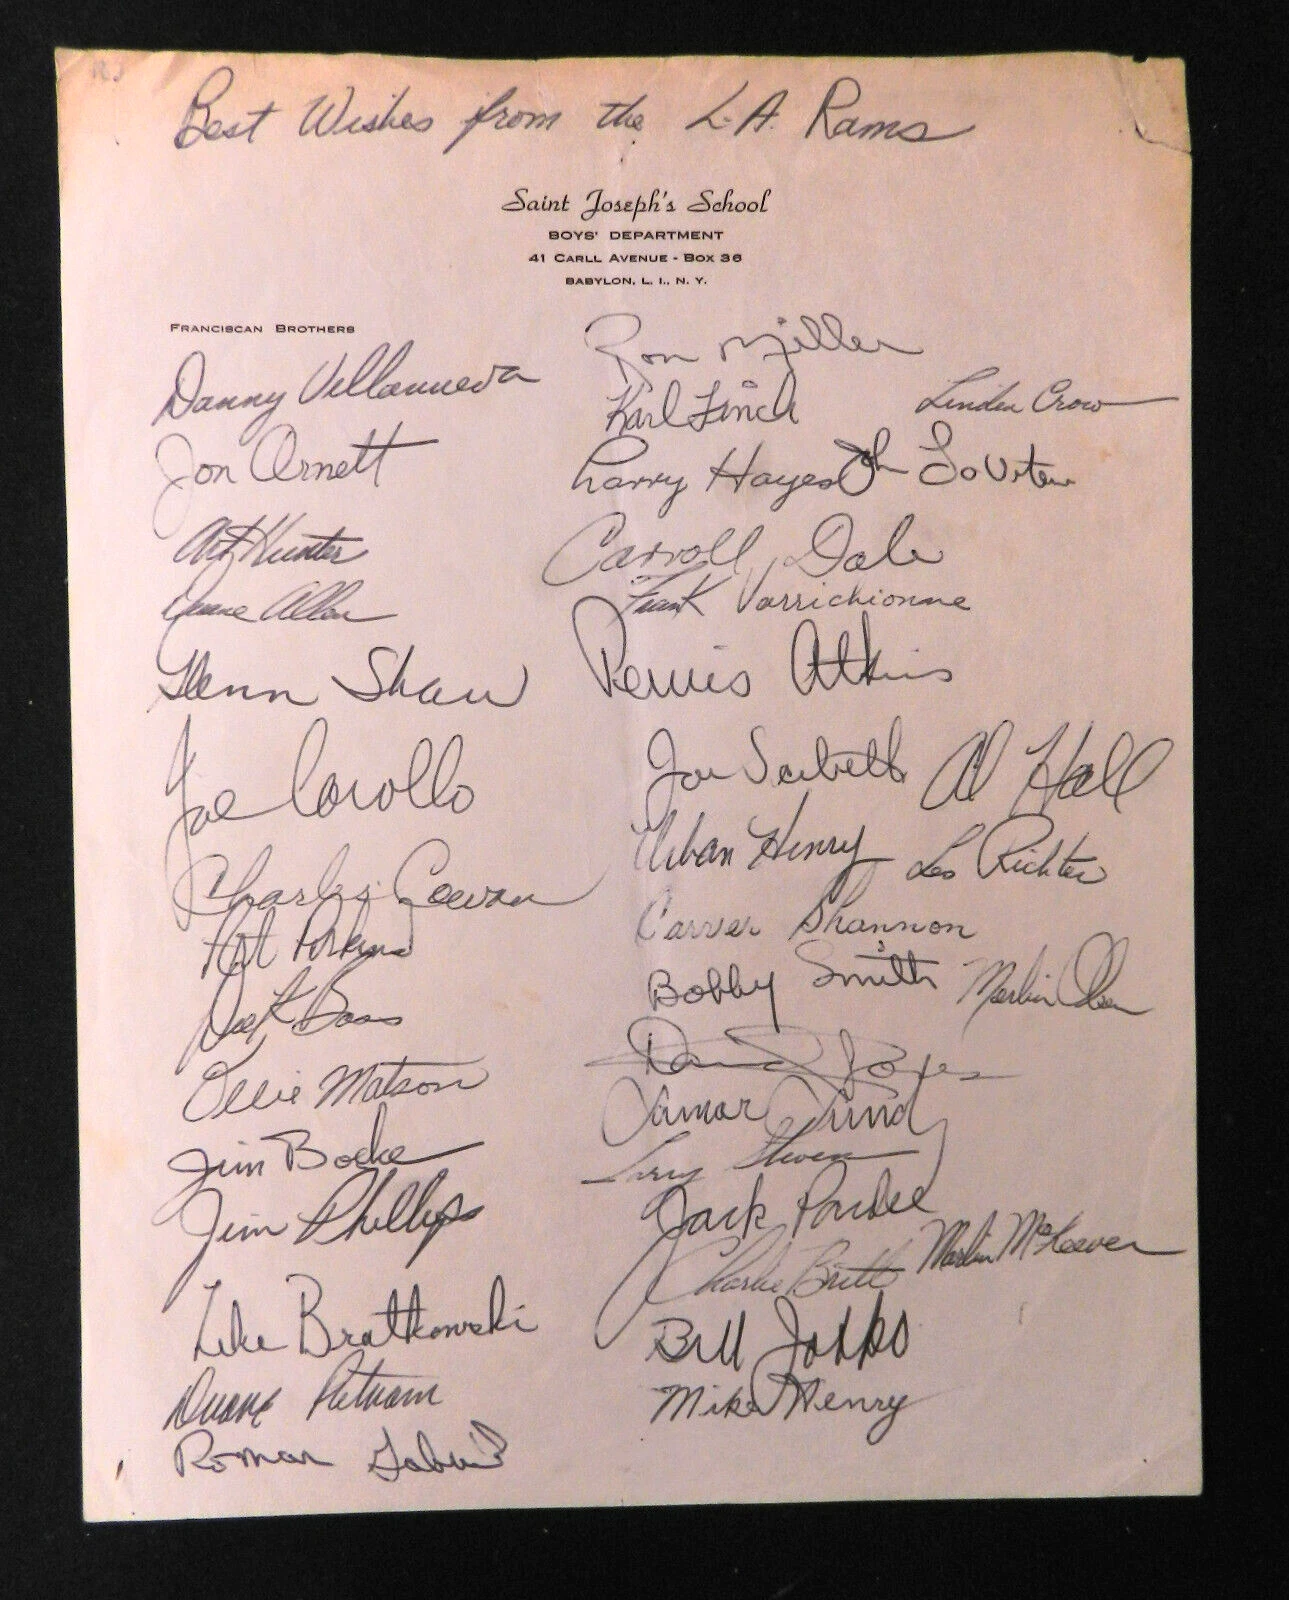 Best Wishes from the L.A. Rams
Saint Joseph's School
BOYS' DEPARTMENT
41 CARLL AVENUE - BOX 36
BABYLON, L. I., N. Y.
FRANCISCAN BROTHERS
Danny Villanueva
Jon Arnett
Art Hunter
Duane Allen
Glenn Shaw
Joe Carollo
Charles Cowan
Art Perkins
Dick Bass
Ollie Matson
Jim Boeke
Jim Phillips
Zeke Bratkowski
Duane Putnam
Roman Gabriel
Ron Miller
Karl Finch Linden Crow
Larry Hayes Joh LoVetere
Carroll Dale
Frank Varrichionne
Pervis Atkins
Joe Scibelli Al Hall
Urban Henry Les Richter
Carver Shannon
Bobby Smith Merlin Olsen
David Jones
Lamar Lundy
Larry Stevens
Jack Pardee
Charlie Britt Marlin McKeever
Bill Jobko
Mike Henry